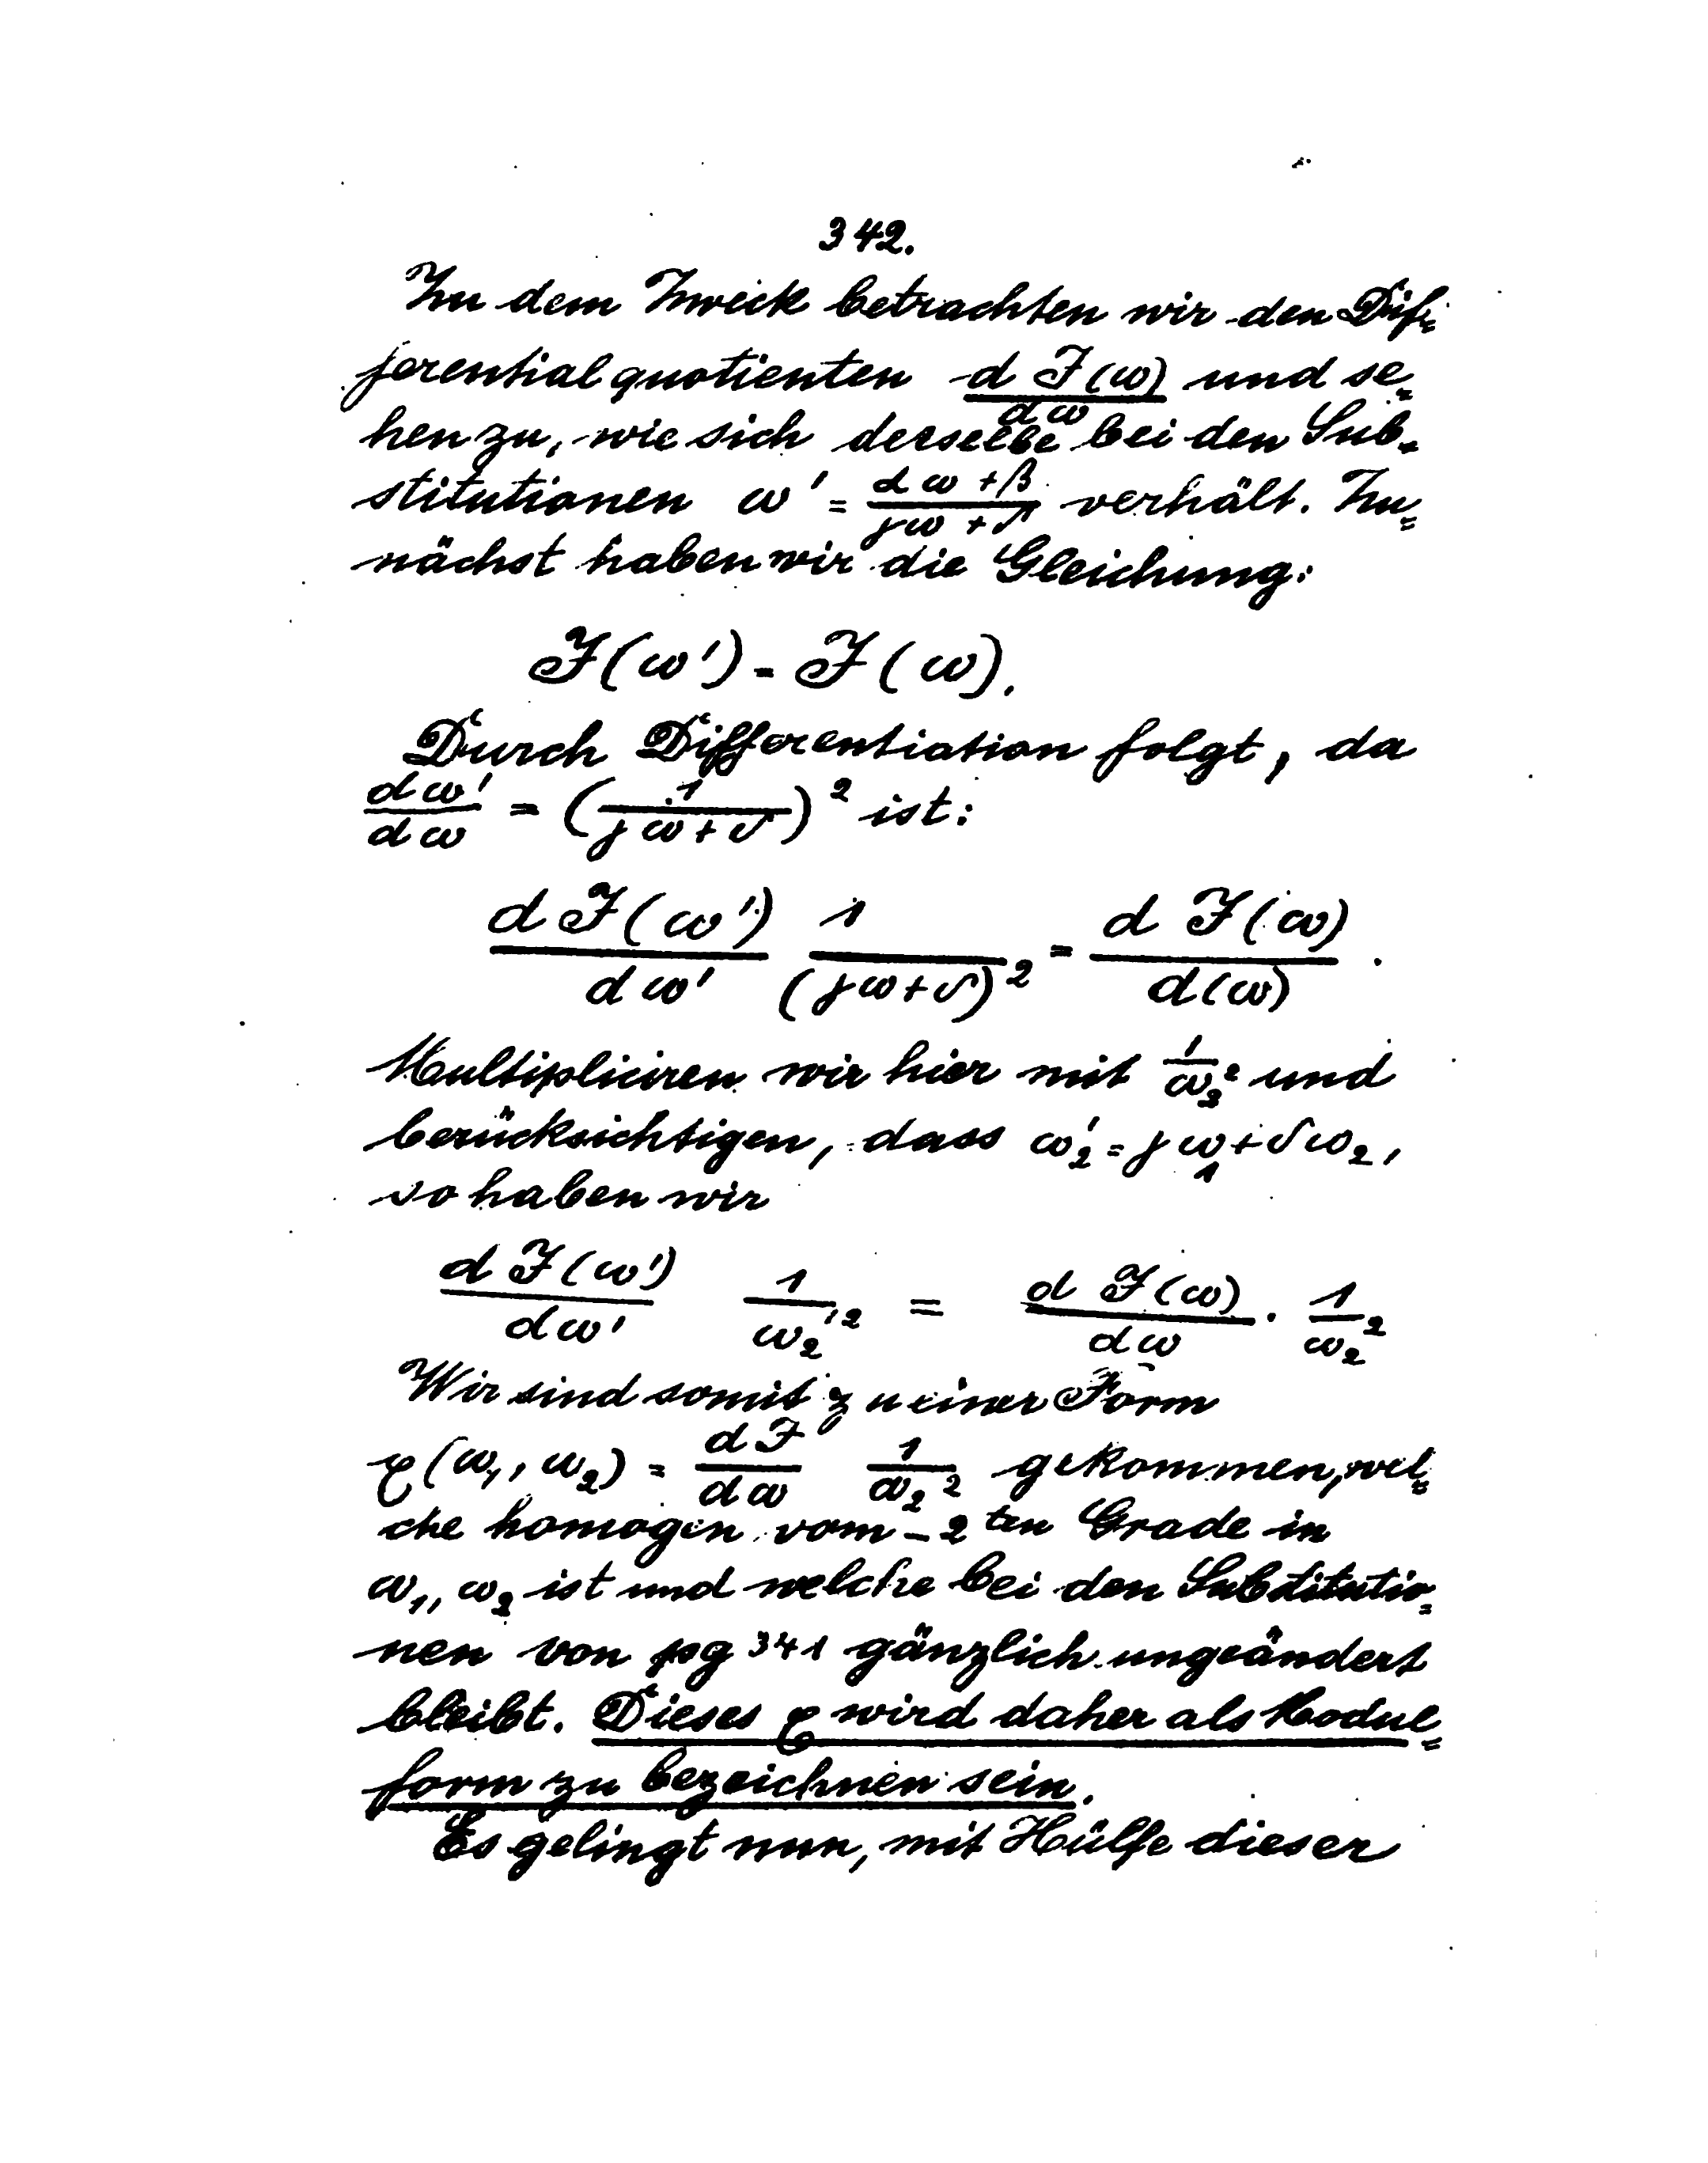 342.
Zu dem Zweck betrachten wir den Dif=
ferentialquotienten d J(ω)/dω und se=
hen zu, wie sich derselbe bei den Sub=
stitutionen ω' = (αω+β)/(γω+δ) verhält. Zu=
nächst haben wir die Gleichung:
J(ω') = J(ω).
Durch Differentiation folgt, da
dω'/dω = (1/(γω+δ))² ist:
d J(ω')/dω' 1/(γω+δ)² = d J(ω)/d(ω).
Multipliciren wir hier mit 1/ω₂² und
berücksichtigen, dass ω₂' = γω₁+δω₂,
so haben wir
d J(ω')/dω' 1/ω₂'² = d J(ω)/dω · 1/ω₂²
Wir sind somit zu einer Form
φ(ω₁, ω₂) = dJ/dω 1/ω₂² gekommen, wel=
che homogen vom -2ten Grade in
ω₁, ω₂ ist und welche bei den Substitutio=
nen von pg 341 gänzlich ungeändert
bleibt. Dieses φ wird daher als Modul=
form zu bezeichnen sein.
Es gelingt nun, mit Hülfe dieser